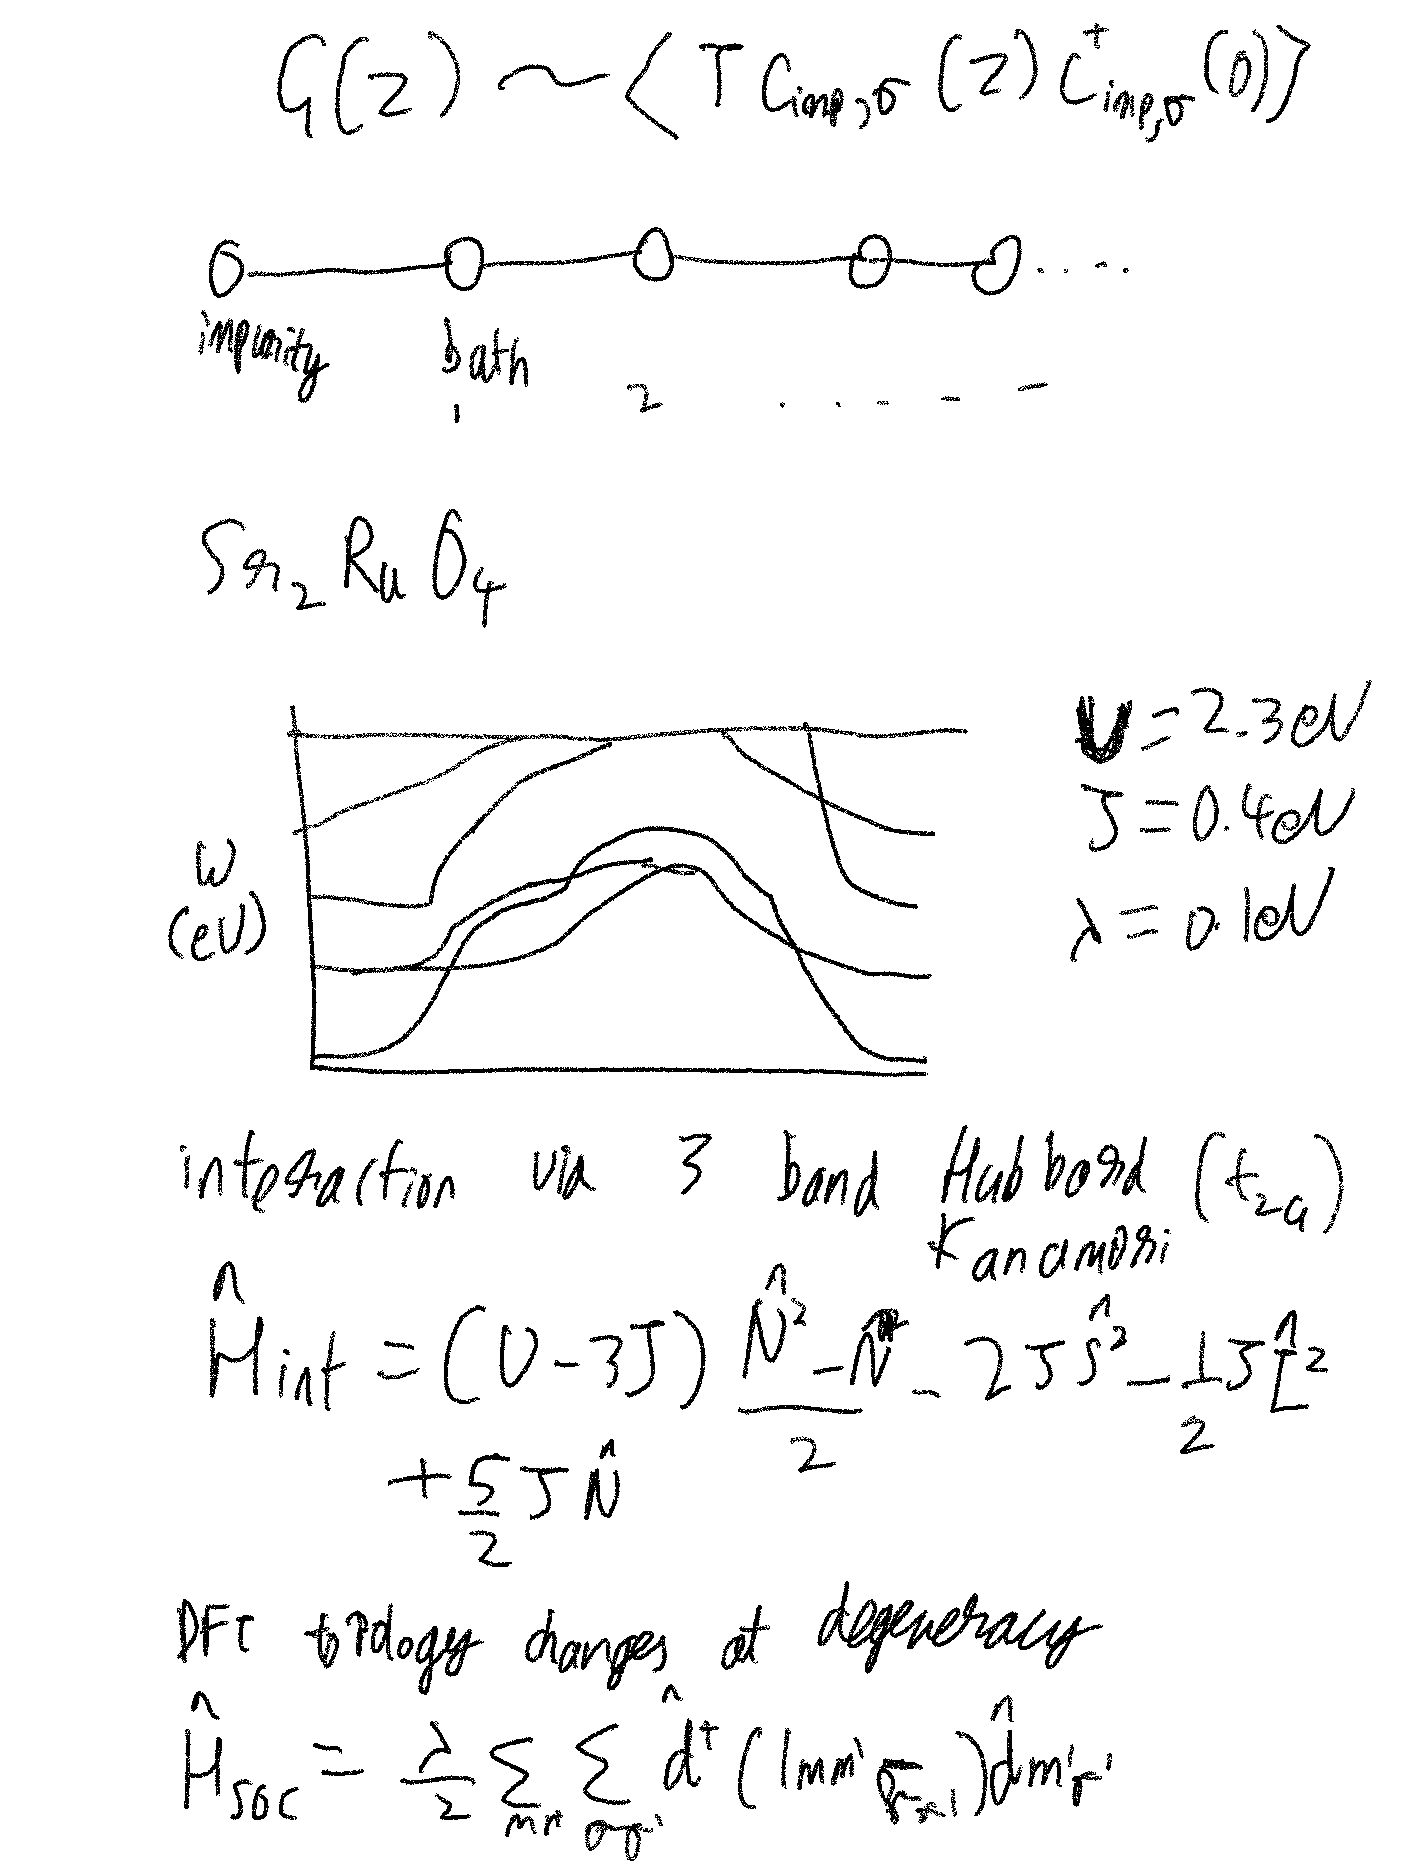 G(z) ~ ⟨T C_{imp,σ}(z) C^†_{imp,σ}(0)⟩
impurity bath
1 2 . . . . - -
Sr₂RuO₄
U = 2.3eV
J = 0.4eV
ω
(eV)
λ = 0.1eV
interaction via 3 band Hubbard (t_{2g})
Kanamori
Ĥ_{int} = (U-3J) (N̂² - N̂)/2 - 2JŜ² - 1/2 JL̂²
+ 5/2 J N̂
DFT topology changes at degeneracy
Ĥ_{SOC} = λ/2 Σ_{mm'} Σ_{σσ'} d̂^† (l_{mm'} σ_{σσ'}) d̂_{m'σ'}